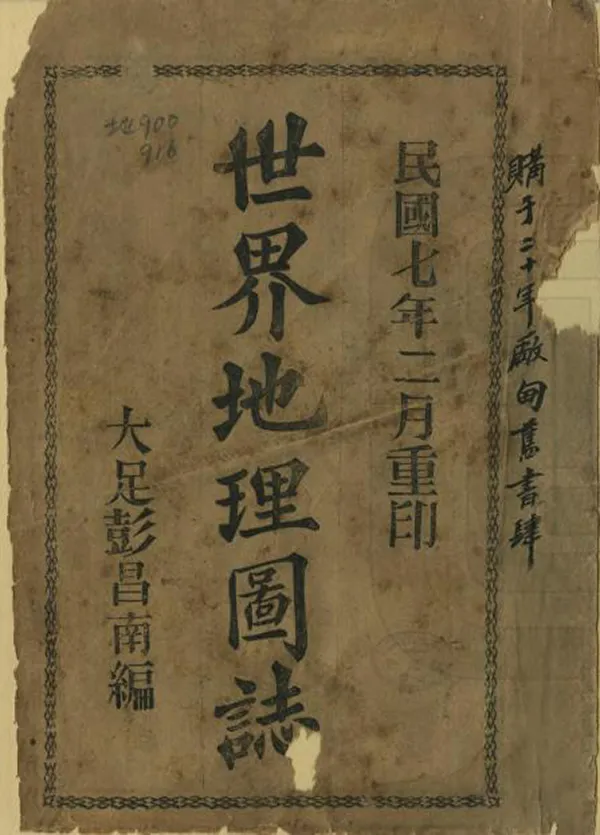 購于二十年廠甸舊書肆
民國七年二月重印
世界地理圖誌
大足彭昌南編
地900
916